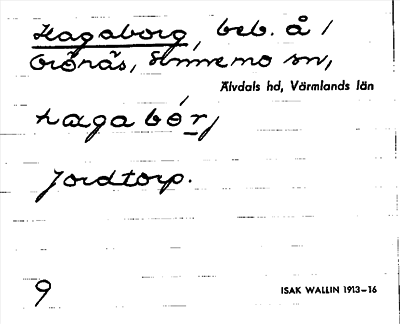 Hagaborg, beb. å /
Grönäs, Ämnee sn,
Älvdals hd, Värmlands län
hagabór,
Jordtorp.
9
ISAK WALLIN 1913–16